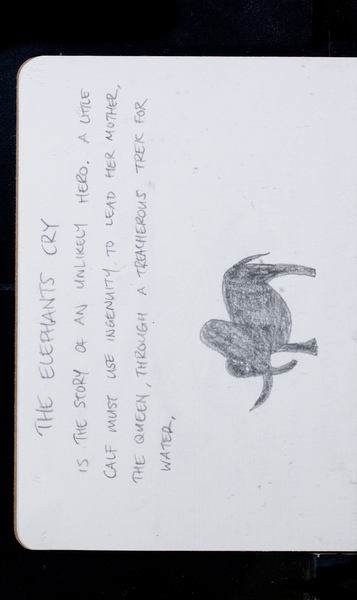 THE ELEPHANTS CRY
IS THE STORY OF AN UNLIKELY HERO. A LITTLE
CALF MUST USE INGENUITY TO LEAD HER MOTHER,
THE QUEEN, THROUGH A TREACHEROUS TREK FOR
WATER,